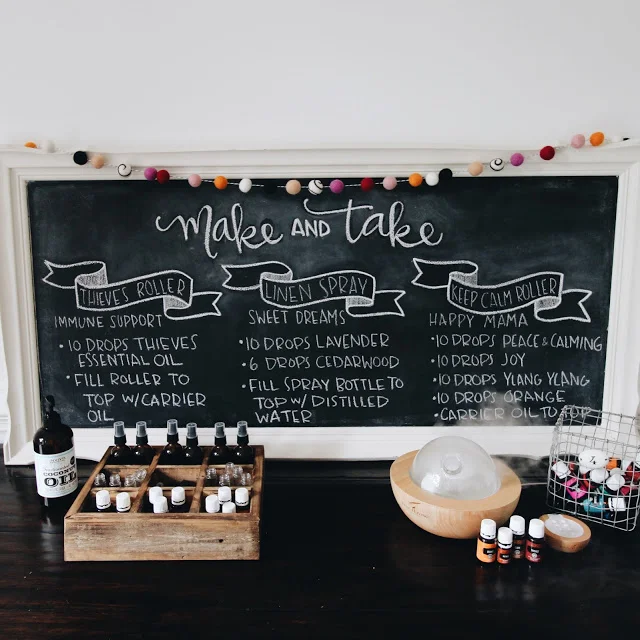 Make AND take
THIEVES ROLLER
IMMUNE SUPPORT
• 10 DROPS THIEVES
ESSENTIAL OIL
• FILL ROLLER TO
TOP W/ CARRIER
OIL
LINEN SPRAY
SWEET DREAMS
• 10 DROPS LAVENDER
• 6 DROPS CEDARWOOD
• FILL SPRAY BOTTLE TO
TOP W/ DISTILLED
WATER
KEEP CALM ROLLER
HAPPY MAMA
• 10 DROPS PEACE & CALMING
• 10 DROPS JOY
• 10 DROPS YLANG YLANG
10 DROPS ORANGE
• CARRIER OIL TO TOP
COCONUT
OIL